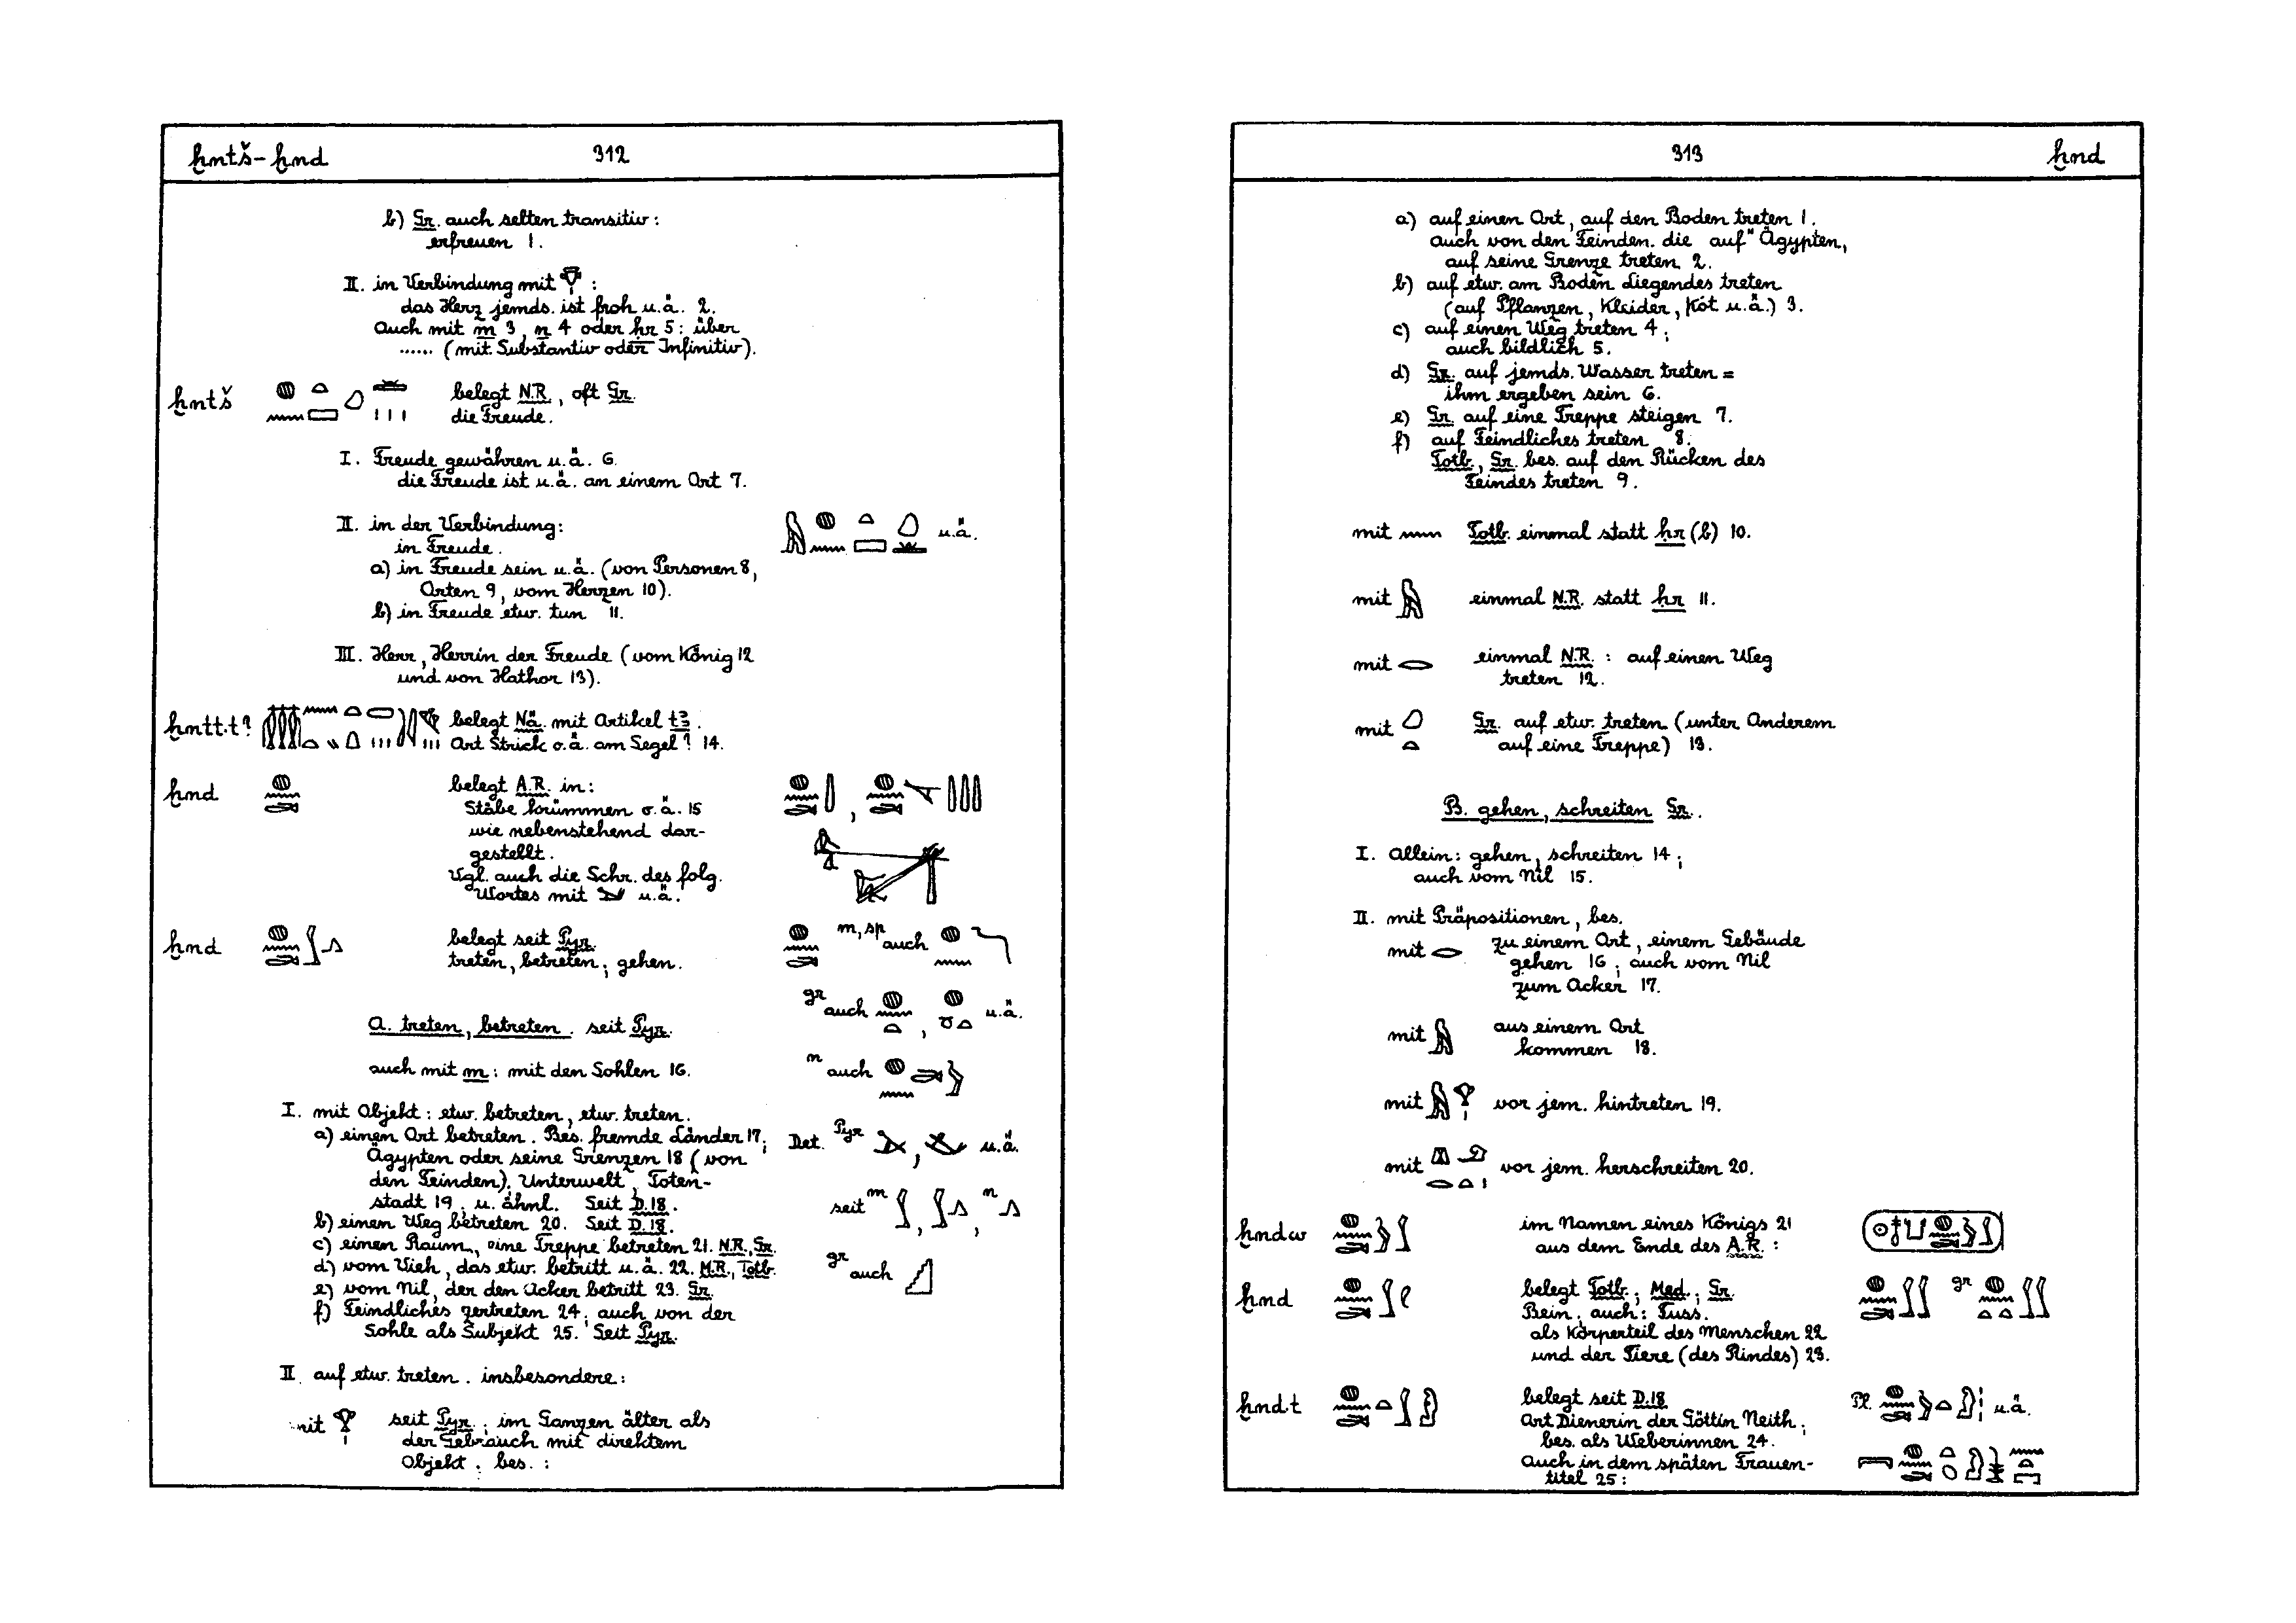 ḫntš - ḫnd 312
b) Gr. auch selten transitiv:
erfreuen 1.
II. in Verbindung mit 𓁷:
das Herz jemds. ist froh u.ä. 2.
Auch mit m 3, n 4 oder ḥr 5: über
...... (mit Substantiv oder Infinitiv).
ḫntš belegt N.R., oft Gr.
die Freude.
I. Freude gewähren u.ä. 6.
die Freude ist u.ä. an einem Ort 7.
II. in der Verbindung: u.ä.
in Freude.
a) in Freude sein u.ä. (von Personen 8,
Orten 9, vom Herzen 10).
b) in Freude etw. tun 11.
III. Herr, Herrin der Freude (vom König 12
und von Hathor 13).
ḫntt.t? belegt Nä. mit Artikel tꜣ.
Art Strick o.ä. am Segel? 14.
ḫnd belegt A.R. in:
Stäbe krümmen o.ä. 15
wie nebenstehend dar-
gestellt.
Vgl. auch die Schr. des folg.
Wortes mit u.ä.
ḫnd belegt seit Pyr. m, sp auch
treten, betreten; gehen.
gr auch , u.ä.
A. treten, betreten. seit Pyr.
auch mit m: mit den Sohlen 16. n auch
I. mit Objekt: etw. betreten, etw. treten.
a) einen Ort betreten. Bes. fremde Länder 17; Det. Pyr , u.ä.
Ägypten oder seine Grenzen 18 (von
den Feinden). Unterwelt, Toten-
stadt 19, u. ähnl. Seit D.18. seit m , , n
b) einen Weg betreten 20. Seit D.18.
c) einen Raum, eine Treppe betreten 21. N.R., Gr.
d) vom Vieh, das etw. betritt u.ä. 22. M.R., Totb. gr auch
e) vom Nil, der den Acker betritt 23. Gr.
f) Feindliches zertreten 24; auch von der
Sohle als Subjekt 25. Seit Pyr.
II. auf etw. treten. insbesondere:
mit 𓁷 seit Pyr.; im Ganzen älter als
der Gebrauch mit direktem
Objekt. bes.:
313 ḫnd
a) auf einen Ort, auf den Boden treten 1.
auch von den Feinden. die "auf" Ägypten,
auf seine Grenze treten 2.
b) auf etw. am Boden Liegendes treten
(auf Pflanzen, Kleider, Kot u.ä.) 3.
c) auf einen Weg treten 4;
auch bildlich 5.
d) Gr. auf jemds. Wasser treten =
ihm ergeben sein 6.
e) Gr. auf eine Treppe steigen 7.
f) auf Feindliches treten 8.
Totb., Gr. bes. auf den Rücken des
Feindes treten 9.
mit 𓈖 Totb. einmal statt ḥr (b) 10.
mit 𓅓 einmal N.R. statt ḥr 11.
mit 𓂋 einmal N.R.: auf einen Weg
treten 12.
mit Gr. auf etw. treten (unter Anderem
auf eine Treppe) 13.
B. gehen, schreiten Gr.
I. Allein: gehen, schreiten 14;
auch vom Nil 15.
II. mit Präpositionen, bes.
mit 𓂋 zu einem Ort, einem Gebäude
gehen 16; auch vom Nil
zum Acker 17.
mit 𓅓 aus einem Ort
kommen 18.
mit 𓅓𓁷 vor jem. hintreten 19.
mit vor jem. herschreiten 20.
ḫndw im Namen eines Königs 21
aus dem Ende des A.R.:
ḫnd belegt Totb.; Med.; Gr. gr
Bein; auch: Fuss.
als Körperteil des Menschen 22
und der Tiere (des Rindes) 23.
ḫnd.t belegt seit D.18 Pl. u.ä.
Art Dienerin der Göttin Neith;
bes. als Weberinnen 24.
Auch in dem späten Frauen-
titel 25: